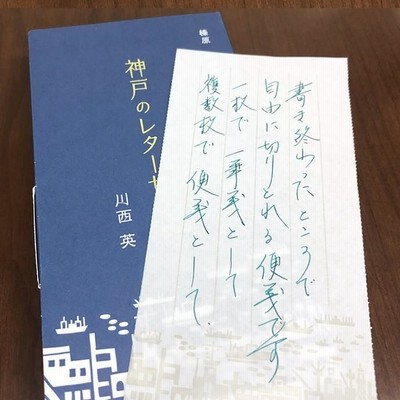 榛原
神戸のレターセ
川西 英
書き終わったところで
自由に切りとれる便箋です
一枚で 一筆箋として
複数枚で 便箋として、